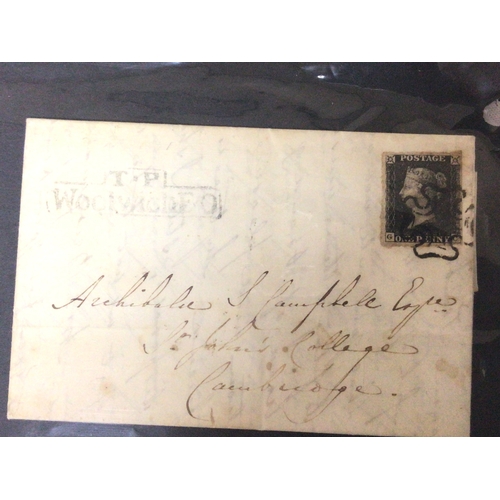 T.P
Woolwich F.O
POSTAGE
ONE PENNY
Archibald S Campbell Esqre
St John's College
Cambridge.